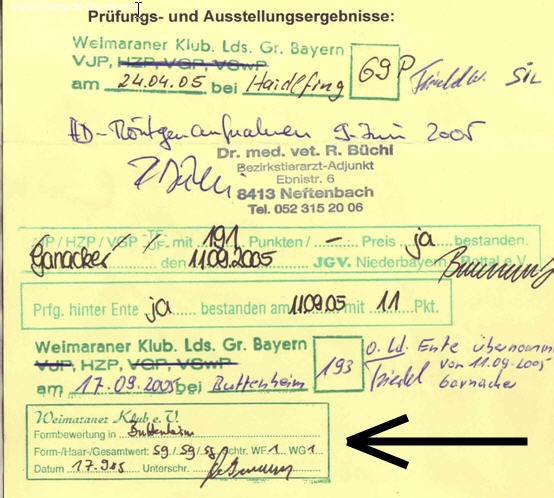 Prüfungs- und Ausstellungsergebnisse:
Weimaraner Klub. Lds. Gr. Bayern
VJP, HZP, VGP, VSwP 69 P
am 24.04.05 bei Haidlfing SIL
HD-Röntgenaufnahmen 9. Juni 2005
Dr. med. vet. R. Büchi
Bezirkstierarzt-Adjunkt
Ebnistr. 6
8413 Neftenbach
Tel. 052 315 20 06
JP / HZP / VGP -TF- ÜF- mit 191 Punkten / — Preis ja bestanden.
Ganacker den 11.09.2005 JGV. Niederbayern / Rottal e.V.
Prfg. hinter Ente ja bestanden am 11.09.05 mit 11 Pkt.
Weimaraner Klub. Lds. Gr. Bayern
VJP, HZP, VGP, VSwP 193
am 17.09.2005 bei Buttenheim
o. ld. Ente übernomm
von 11.09.2005
Ganacker
Weimaraner Klub e.V.
Formbewertung in Buttenheim
Form-/Haar-/Gesamtwert: sg / sg / sg Rchtr. WF 1 WG 1
Datum 17.9.05 Unterschr.